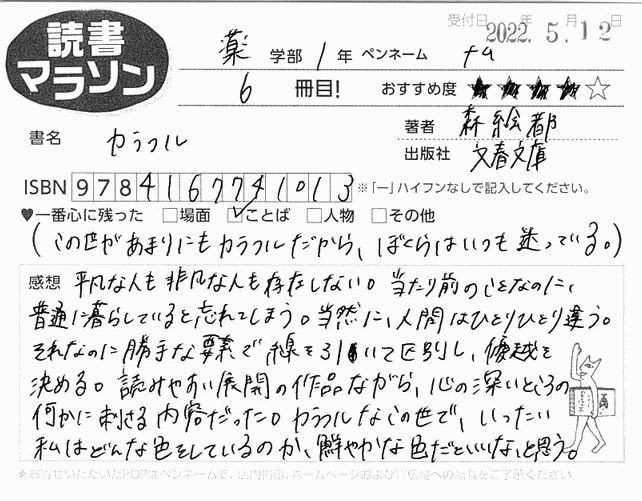 受付日 年 月 日
2022. 5. 12
読書
マラソン
薬 学部 1 年 ペンネーム ナa
6 冊目! おすすめ度 ★★★★☆
書名 カラフル
著者 森絵都
出版社 文春文庫
ISBN 9784167741013 ※「ー」ハイフンなしで記入してください。
♥一番心に残った □場面 ☑ことば □人物 □その他
(この世があまりにもカラフルだから、ぼくらはいつも迷っている。)
感想 平凡な人も非凡な人も存在しない。当たり前のことなのに、
普通に暮らしていると忘れてしまう。当然に、人間はひとりひとり違う。
それなのに勝手な要素で線を引いて区別し、優越を
決める。読みやすい展開の作品ながら、心の深いところの
何かに刺さる内容だった。カラフルなこの世で、いったい
私はどんな色をしているのか、鮮やかな色だといいな、と思う。
★お寄せいただいたPOPはペンネームで、店内掲示、ホームページおよび